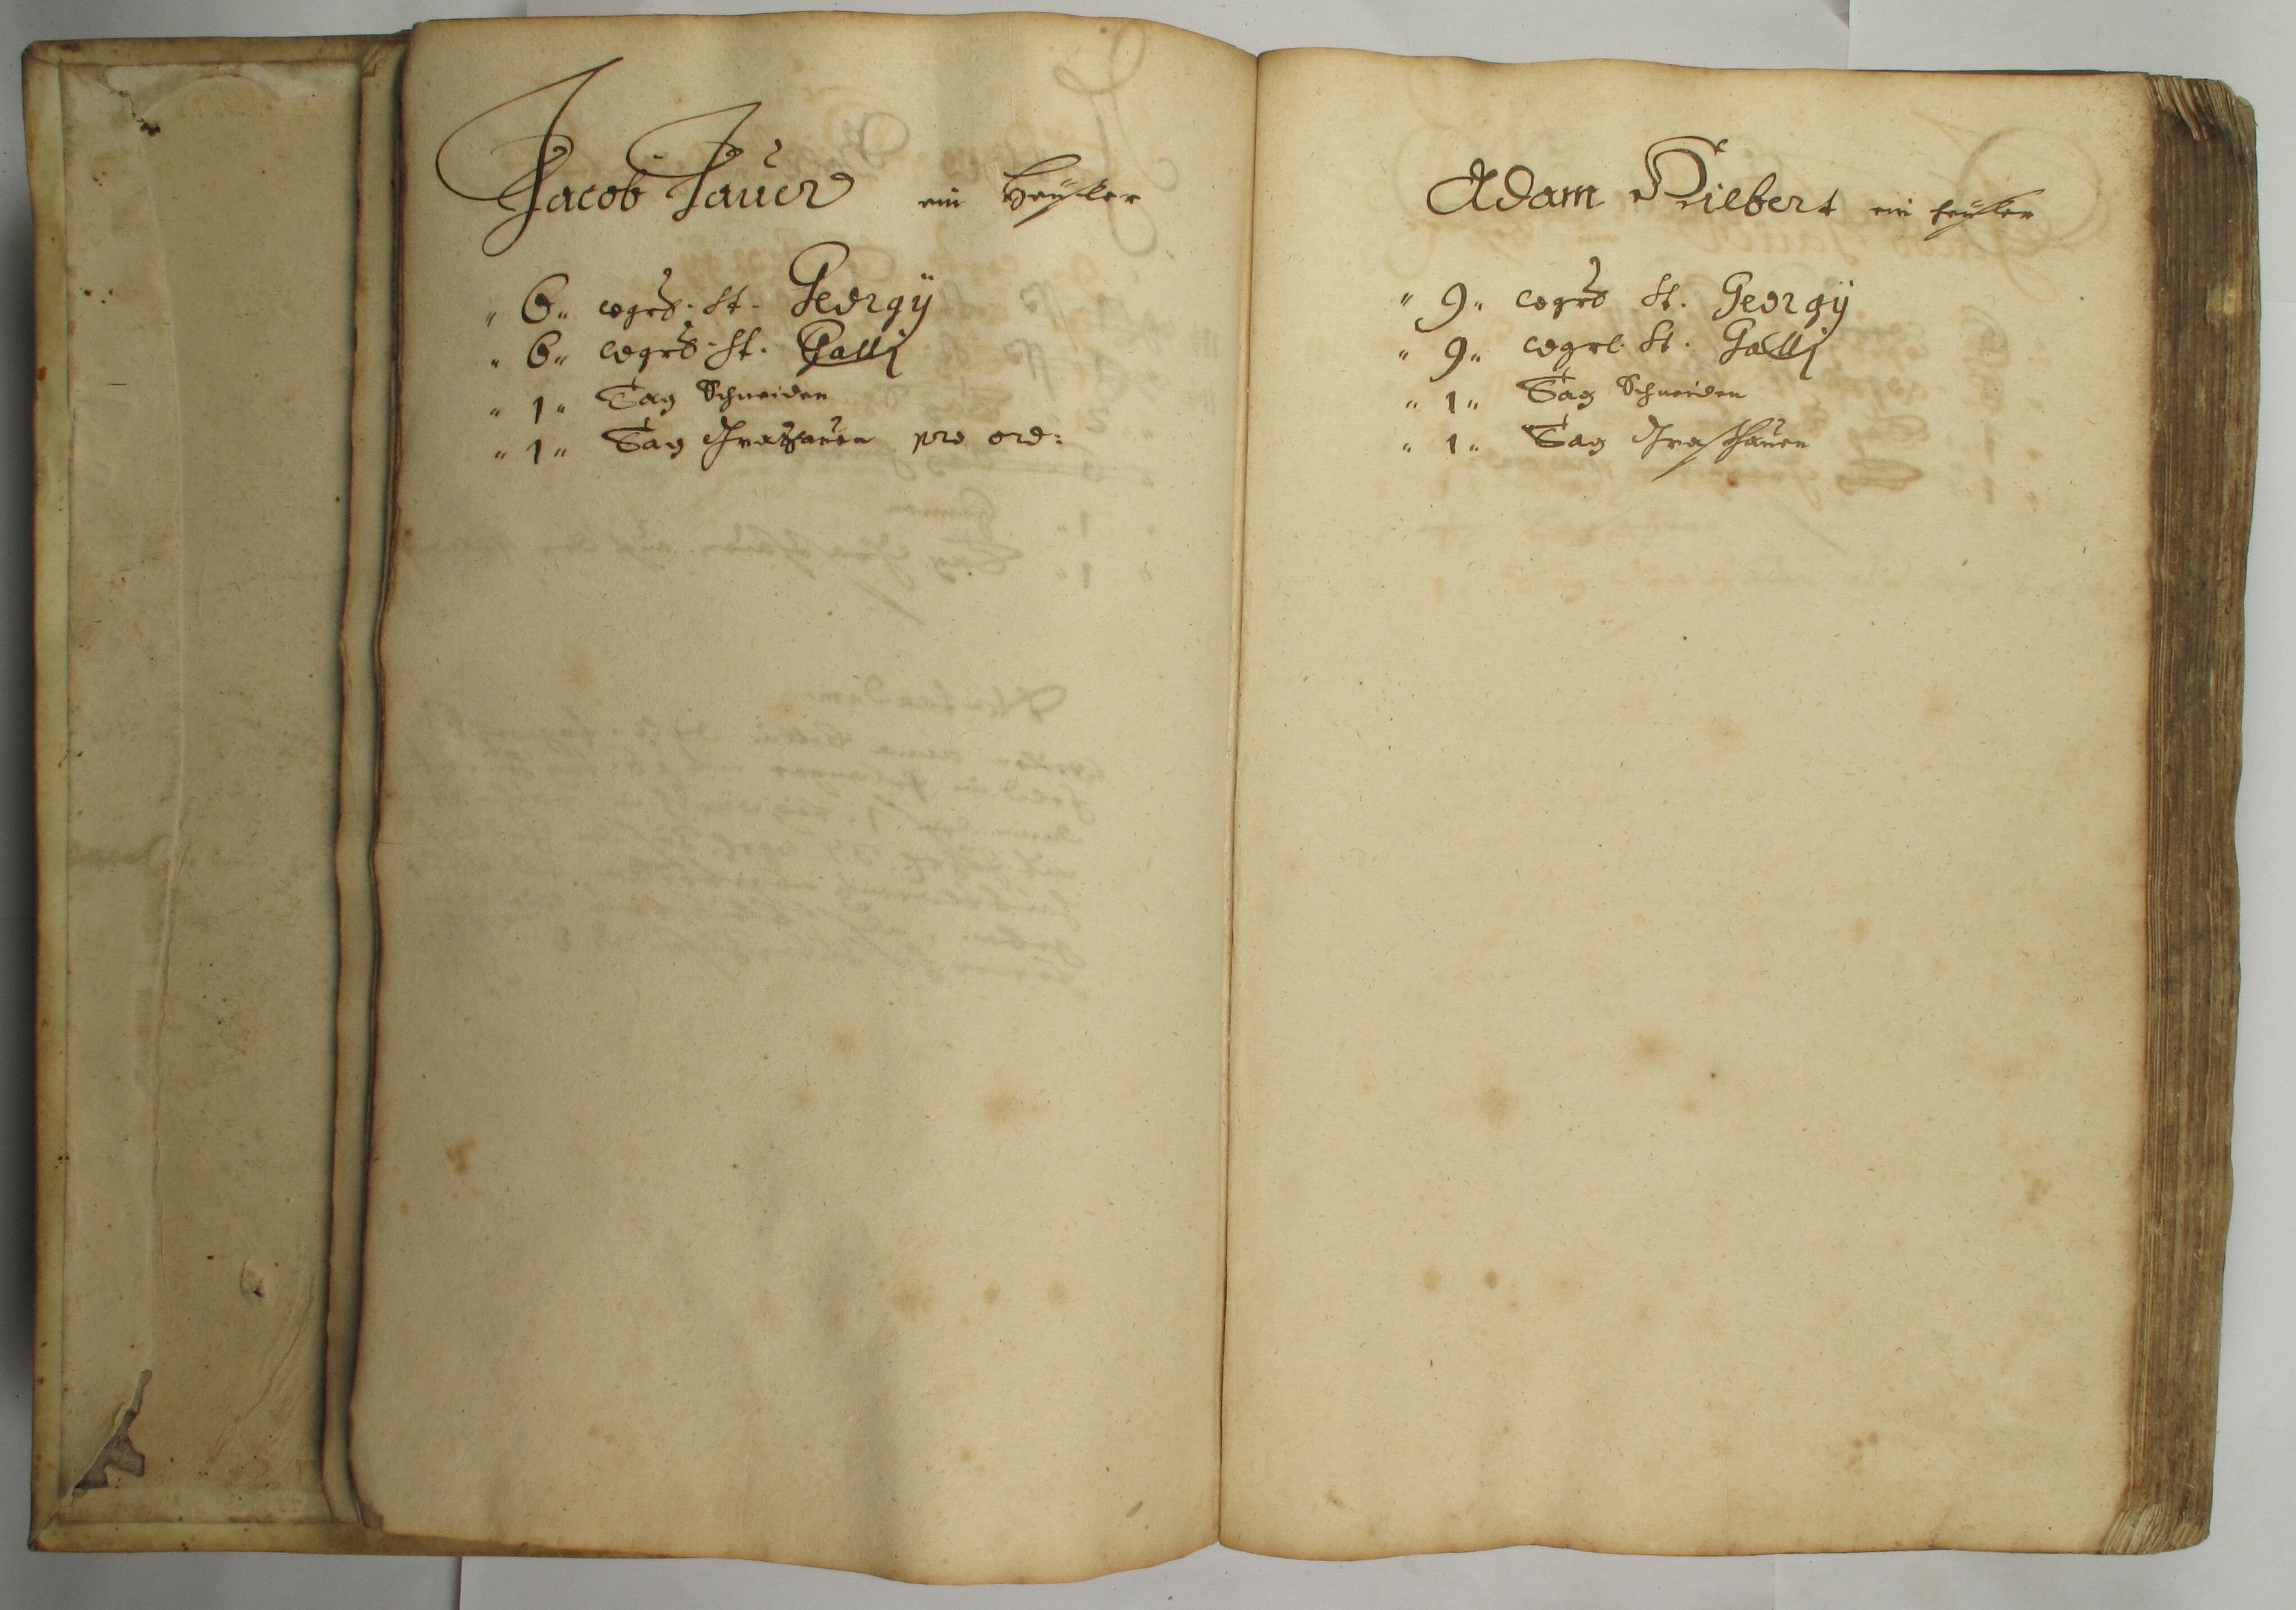 Jacob Jauer ein Heüsler
„ 6 „ wgrl. St. Georgÿ
„ 6 „ wgrl. St. Galli
„ 1 „ Tag Schneiden
„ 1 „ Tag Graßhauen pro ord:
Adam Hilbert ein heüsler
„ 9 „ wgrl. St. Georgÿ
„ 9 „ wgrl. St. Galli
„ 1 „ Tag Schneiden
„ 1 „ Tag Graßhauen